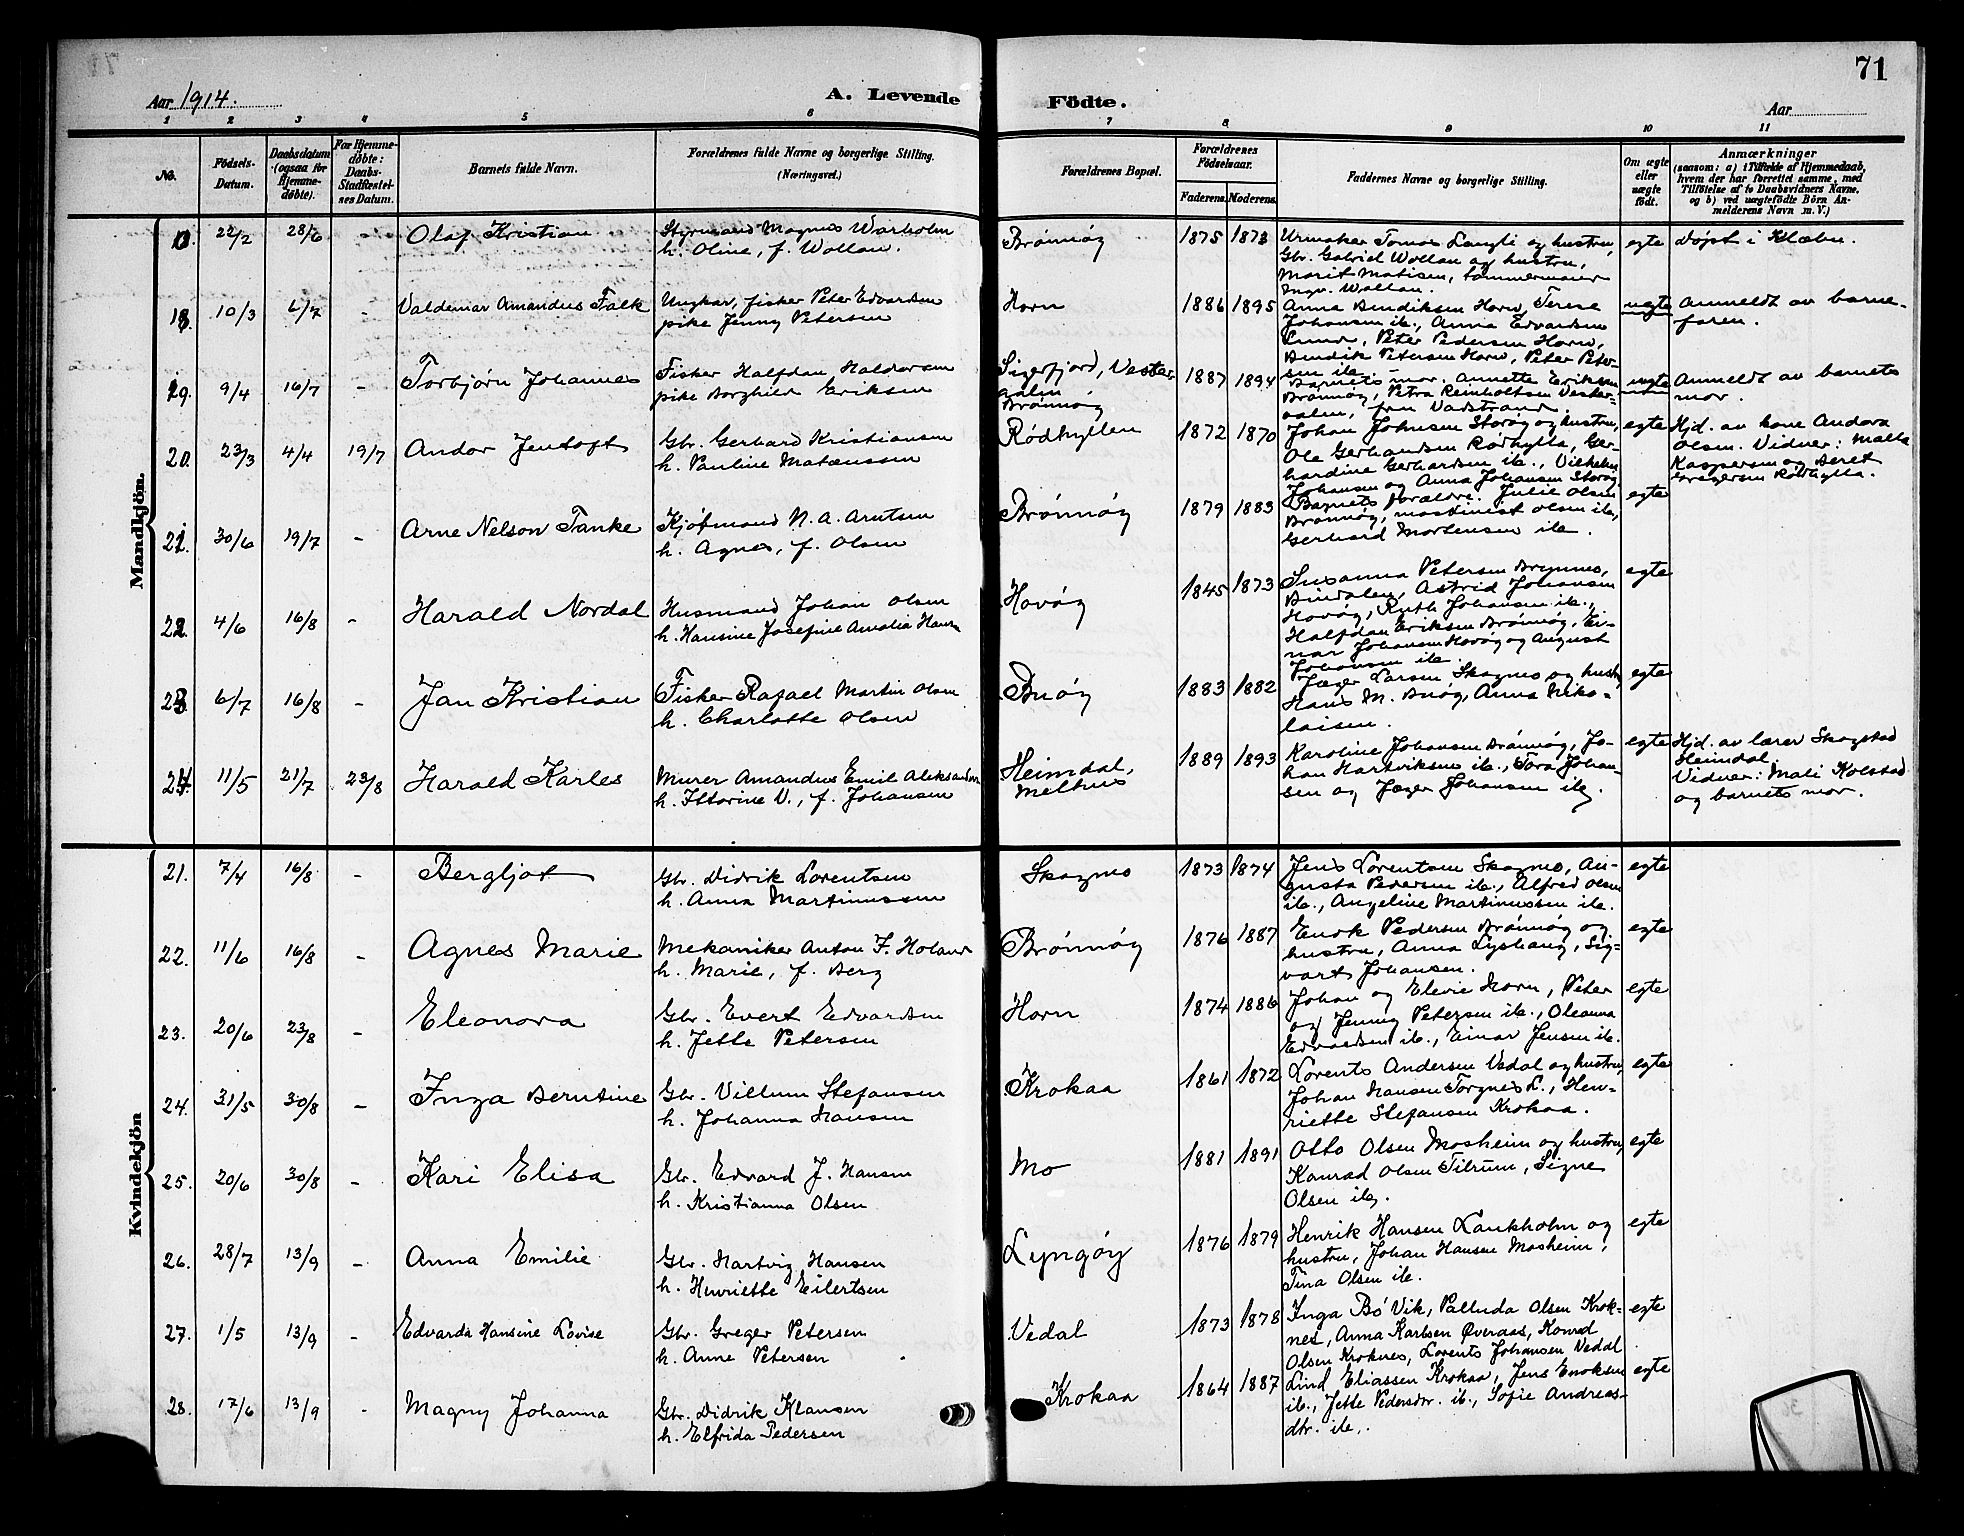 71
Aar 1914.
A. Levende Födte.
Aar
1 2 3 4 5 6 7 8 9 10 11
No.
Födsels-Datum.
Daabsdatum (ogsaa for Hjemme-døbte).
For Hjemme-døbte: Daabs-Stadfæstel-ses Datum.
Barnets fulde Navn.
Forældrenes fulde Navne og borgerlige Stilling. (Næringsvei.)
Forældrenes Bopæl.
Forældrenes Födselsaar.
Faderens. Moderens.
Faddernes Navne og borgerlige Stilling.
Om ægte eller uægte født.
Anmærkninger
(saasom: a) i Tilfælde af Hjemmedaab, hvem der har forrettet samme, med Tilföielse af to Daabsvidners Navne, og b) ved uægtefödte Börn Anmelderens Navn m.V.)
Mandkjön.
22/2 28/6 - Olaf Kristian
Styrmand Magnus Warholm
h. Oline, f. Wollan.
Brónnóy 1875 1873
Urmaker Tomas Langli og hustru,
Gbr. Gabriel Wollan og hustru,
Marit Matisen, tømmermann
Ingv. Wollan.
egte
døpt i Klæbu.
10/3 6/7 - Valdemar Amandus Falk
Ungkar, fisker Peter Edvardsen
pike Jenny Petersen
Horn 1886 1895
Anna Bendiksen Horn, Terese
Johansen ib., Anna Edvardsen
Lund, Peter Pedersen Horn,
Bendik Petersen Horn, Peter Peter-
sen ib.
uegte
Anmeldt av barne-
faren.
29. 9/4 16/7 - Torbjørn Johannes
Fisker Halfdan Haldorsen
pike Borghild Eriksen
Sigerfjord, Vester-
aalen
Brónnóy
1887 1894
Barnets mor, Annette Eriksen
Brónnóy, Petra Reinholtsen Vester-
aalen, fru Vadstrand.
uegte
Anmeldt av barnets
mor.
20. 23/3 4/4 19/7 Andor Jentoft
Gbr. Gerhard Kristiansen
h. Pauline Matæussen
Rødhyllen 1872 1870
Johan Johnsen Storóg og hustru,
Ole Gerhardsen Rødhylla, Ger-
hardine Gerhardsen ib., Vilhelm
Johansen og Anna Johansen Storóy
egte
Hjd. av kone Andora
Olsen. Vidner: Malla
Kaspersen og Beret
Gregersen Rødhylla.
21. 30/6 19/7 - Arne Nelson Tanke
Kjøtmand N. A. Arntsen
h. Agnes, f. Olsen
Brónnóy 1879 1883
Barnets forældre. Julie Olsen
Brónnóy, maskinist Olsen ib,
Gerhard Mortensen ib.
egte
22. 4/6 16/8 - Harald Nordal
Husmand Johan Olsen
h. Hansine Josefine Amalia Hans
Hovóy 1845 1873
Susanna Petersen Brynnes,
Bindalen, Astrid Johansen
Hovóy, Ruth Johansen ib.,
Halfdan Eriksen Brónnóy, Ei-
nar Johansen Hovóy og August
Johansen ib.
egte
23. 6/7 16/8 - Jan Kristian
Fisker Rafael Martin Olsen
h. Charlotte Olsen
Buóy 1883 1882
Jæger Larsen Skagmo og hustr,
Hans M. Buóy, Anna Niko-
laisen.
egte
24. 11/5 21/7 23/8 Harald Karles
Murer Amandus Emil Aleksandersen
h. Ittorine V., f. Johansen
Heimdal,
Melhus
1889 1893
Karoline Johansen Brónnóy, Jo-
han Hartviksen ib., Tora Johan-
sen og Jæger Johansen ib.
egte
Hjd. av lærer Skogstad
Heimdal.
Vidner: Mali Kolstad
og barnets mor.
Kvindekjön
21. 7/4 16/8 - Bergljot
Gbr. Didrik Lorentsen
h. Anna Martinussen
Skagmo 1873 1874
Jens Lorentsen Skagmo, Au-
gusta Pedersen ib., Alfred Olsen
ib., Angeline Martinussen ib.
egte
22. 11/6 16/8 - Agnes Marie
Mekaniker Anton F. Holand
h. Marie, f. Berg
Brónnóy 1876 1887
Enok Pedersen Brónnóy og
hustru, Anna Lyshaug, Sig-
vart Johansen.
egte
23. 20/6 23/8 - Eleonora
Gbr. Evert Edvardsen
h. Jette Petersen
Horn 1874 1886
Johan og Elevie Horn, Peter
og Jenny Petersen ib., Oleanna
Edvardsen ib., Einar Jensen ib.
egte
24. 31/5 30/8 - Inga Berntine
Gbr. Villum Stefansen
h. Johanna Hansen
Krokaa 1861 1872
Lorents Andersen Vedal og hustru,
Johan Hansen Torgnes L., Hen-
riette Stefansen Krokaa.
egte
25. 20/6 30/8 - Kari Elisa
Gbr. Edvard J. Hansen
h. Kristianna Olsen
Mo 1881 1891
Otto Olsen Mosheim og hustru,
Konrad Olsen Tilrum, Signe
Olsen ib.
egte
26. 28/7 13/9 - Anna Emilie
Gbr. Hartvig Hansen
h. Henriette Eilertsen
Lyngóy 1876 1879
Henrik Hansen Lankholm og
hustru, Johan Hansen Mosheim,
Tina Olsen ib.
egte
27. 1/5 13/9 - Edvarda Hansine Lovise
Gbr. Greger Petersen
h. Anne Petersen
Vedal 1873 1878
Inga Bó Vik, Palluda Olsen Krok-
nes, Anna Karlsen Øveraas, Konrad
Olsen Kroknes, Lorents Johansen Vedal
egte
28. 17/6 13/9 - Magny Johanna
Gbr. Didrik Klausen
h. Elfrida Pedersen
Krokaa 1864 1887
Lind Eliassen Krokaa, Jens Enoksen
ib., Jette Pedersdr. ib., Sofie Andreas-
dtr. ib.
egte